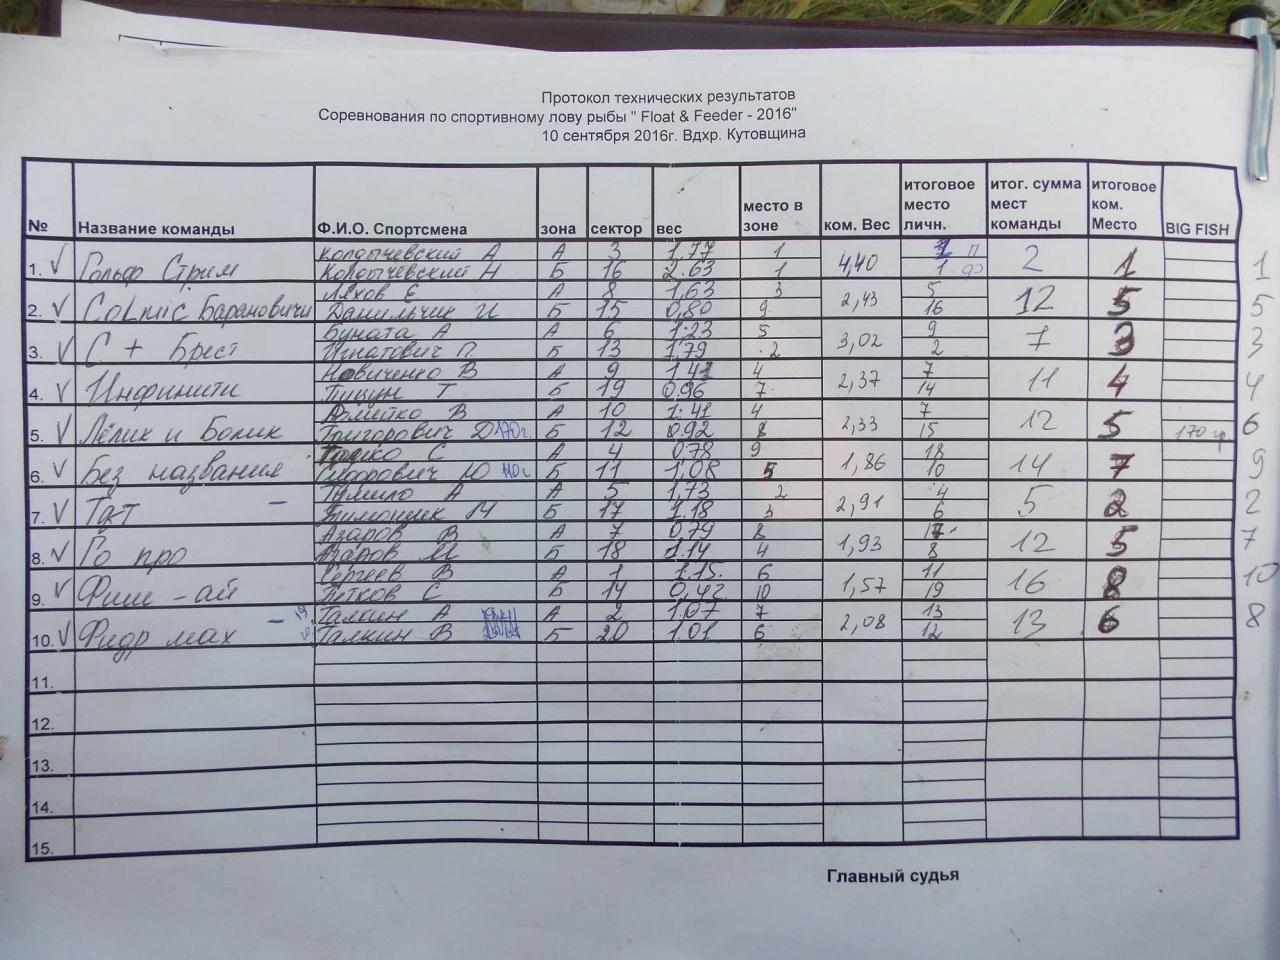 Протокол технических результатов
Соревнования по спортивному лову рыбы " Float & Feeder - 2016"
10 сентября 2016г. Вдхр. Кутовщина
№ Название команды Ф.И.О. Спортсмена зона сектор вес место в зоне ком. Вес итоговое место личн. итог. сумма мест команды итоговое ком. Место BIG FISH
1. √ Гольф Стрим Колдычевский А А 3 1,77 1 4,40 1 П 2 1 1
Колдычевский Н Б 16 2.63 1 1
2. √ Colmic Барановичи Ляхов Е А 8 1,63 3 2,43 5 12 5 5
Данильчик И Б 15 0,80 9 16
3. √ С + Брест Буната А А 6 1.23 5 3,02 9 7 3 3
Игнатович П. Б 13 1,79 2 2
4. √ Инфинити Новиченко В А 9 1.41 4 2,37 7 11 4 4
Пицун Т Б 19 0.96 7 14
5. √ Лёлик и Болик В А 10 1.41 4 2,33 7 12 5 6
Григорович Д 170г. Б 12 0.92 8 15 170 гр
6. √ Без названия С А 4 0,78 9 1,86 18 14 7 9
Ю 110г Б 11 1,08 5 10
7. √ Тат – А А 5 1,73 2 2,91 4 5 2 2
Тимощик М Б 17 1.18 3 6
8. √ Го про Азаров В А 7 0,79 8 1,93 17 12 5 7
Азаров М Б 18 1.14 4 8
9. √ Фиш - ай Сергеев В А 1 1.15. 6 1,57 11 16 8 10
Петков С Б 14 0,42 10 19
10. √ Фидр мах – Талкин А А 2 1.07 7 2,08 13 13 6 8
Талкин В Б 20 1.01 6 12
11.
12.
13.
14.
15.
Главный судья